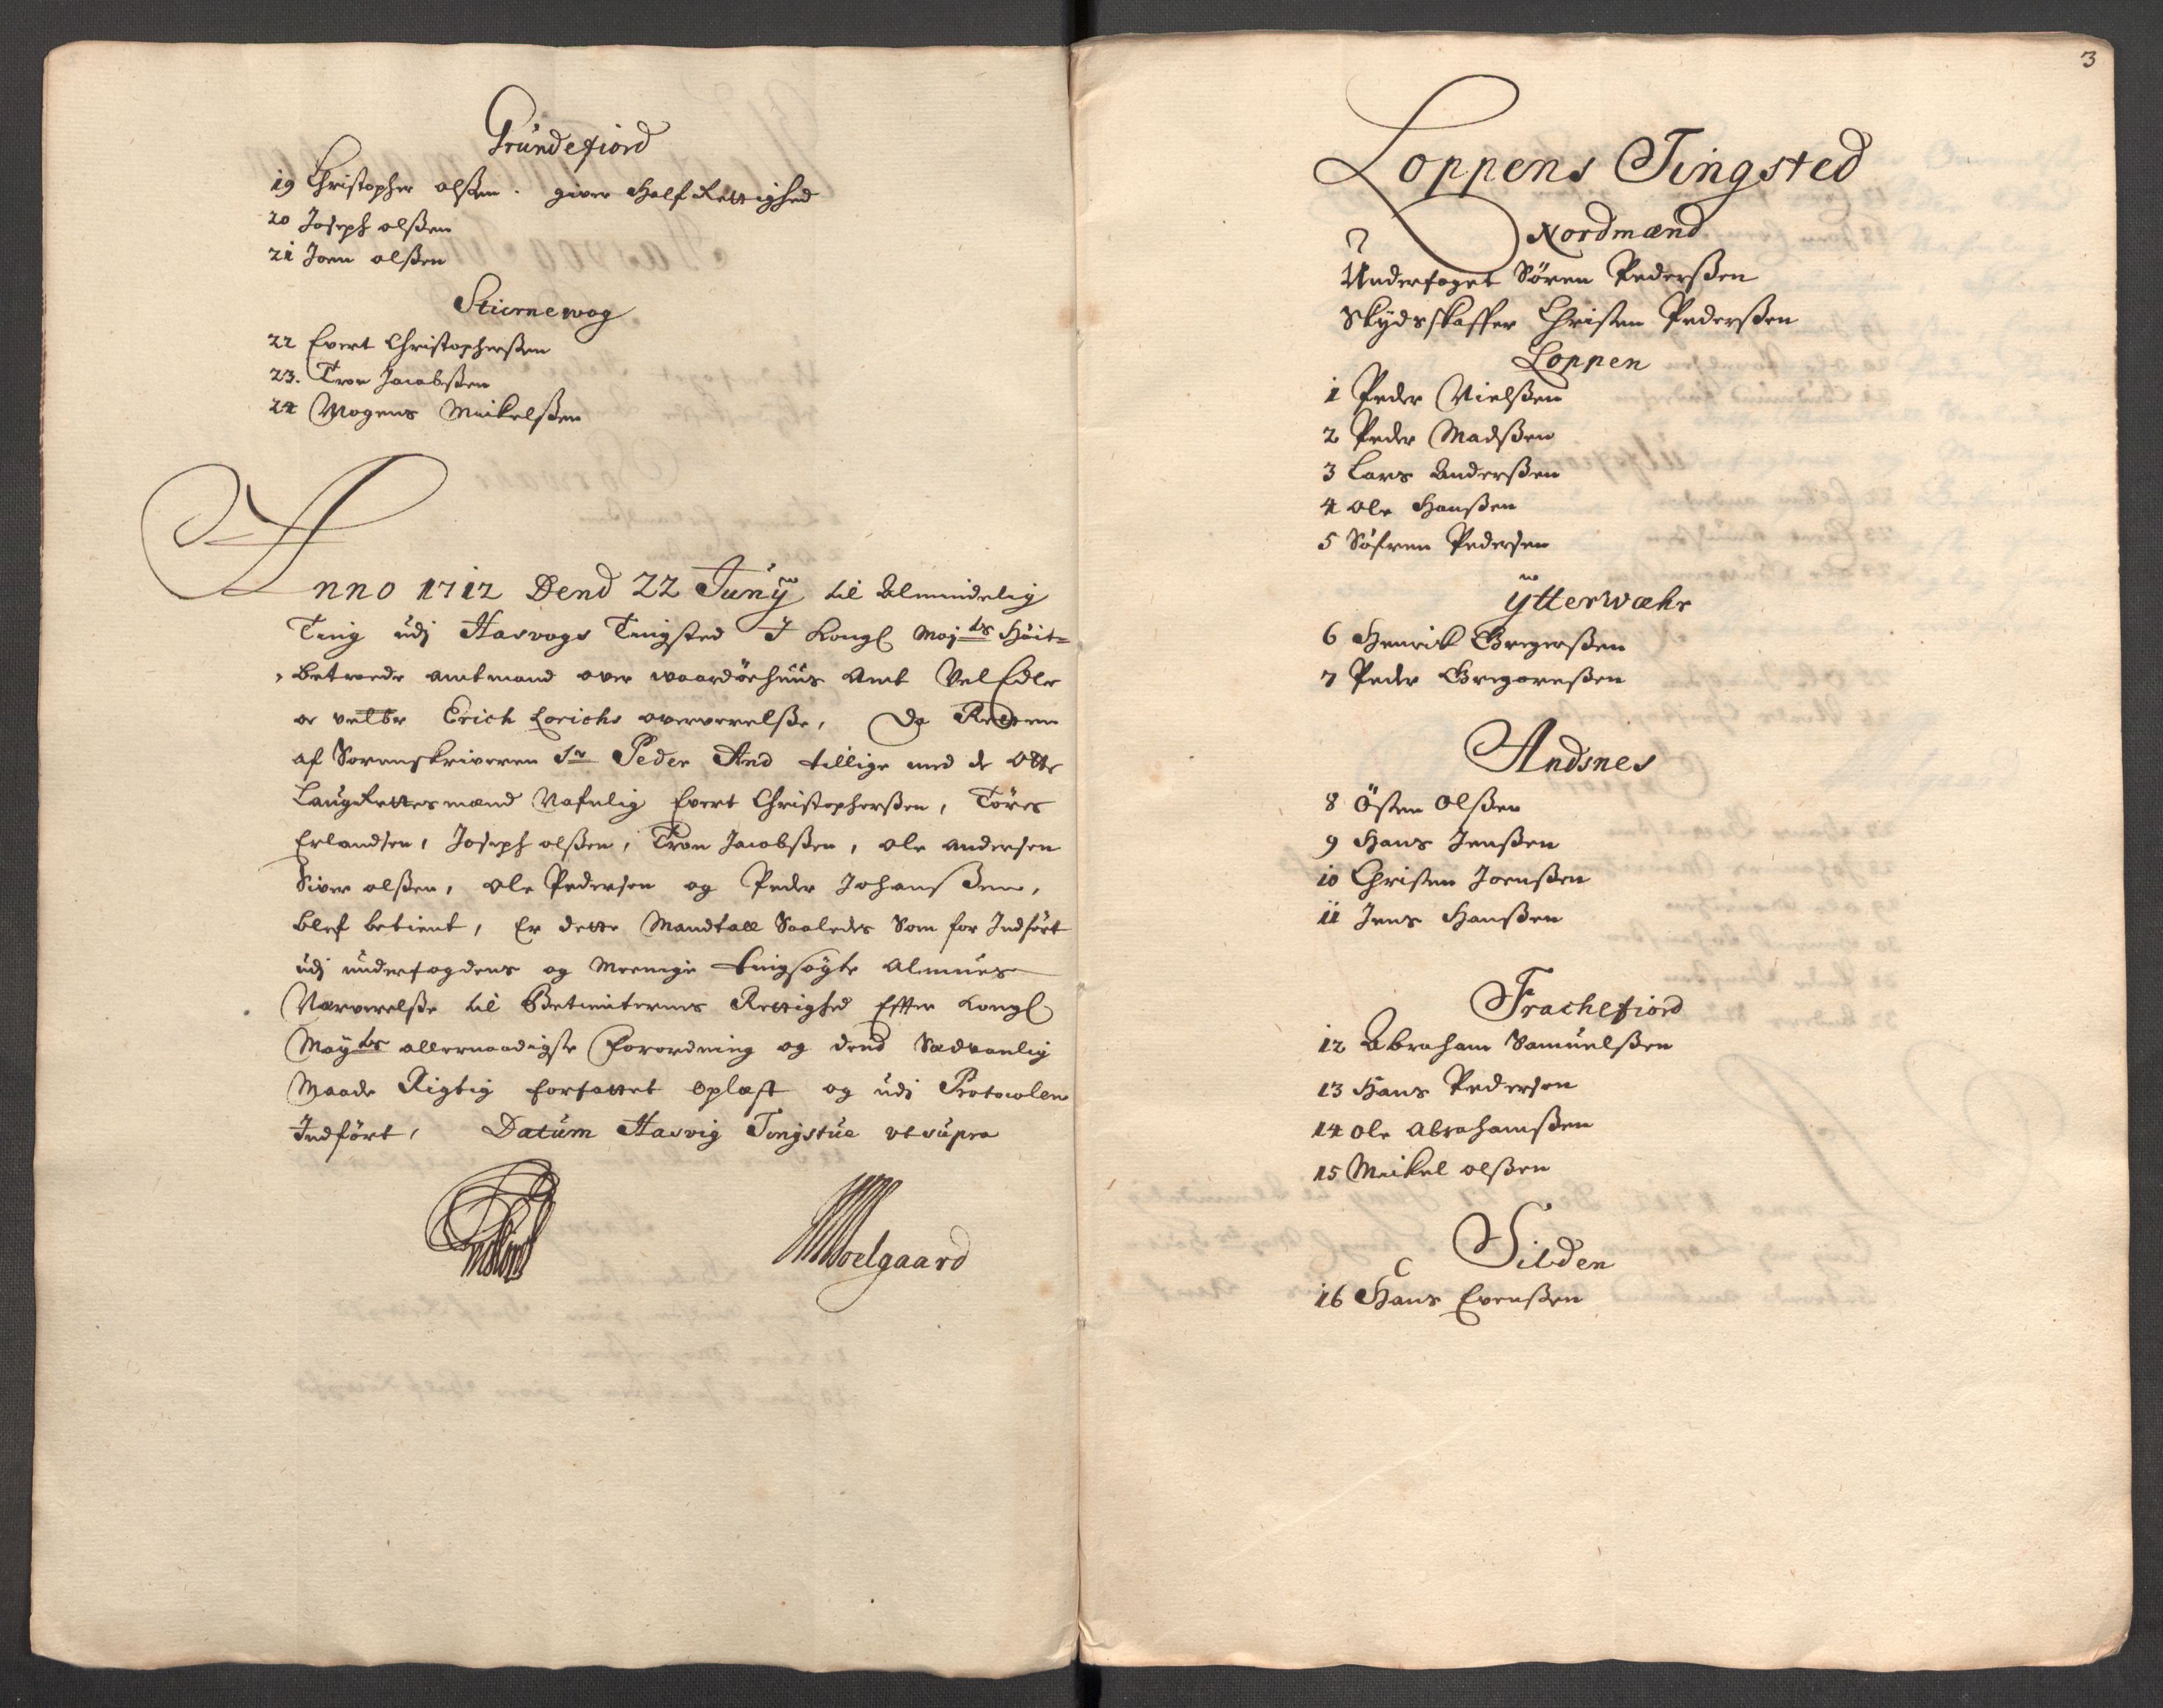 Grundefiord
19 Christopher olßen . giver Half Rettighed
20 Joseph olßen
21 Joen olßen
Stiernewog
22 Evert Christopherßen
23. Tron Jacobßen
24 Mogens Meikelßen
Anno 1712 Dend 22 Junÿ til Almindelig
Ting udj Hasvogs Tingsted J Kongl Mayts Høit=
betroede Amtmand over waardøehuus Amt Vel Edle
oc velbr Erich Lorichs oververelße, da Retten
af Sorenskriveren Sr Peder And tillige med de Otte
LaugRettesmænd Nafnlig Evert Christopherßen, Töres
Erlandsen, Joseph olßen, Tron Jacobßen, ole andersen
Siver olßen, ole Pedersen og Peder Johanßen,
blef betient, Er dette Mandtall Saaledes Som for Indført
udj underfogdens og Meenige tingsøgte Almues
Nærverelße til Betienternes Rettighed Effter Kongl
Mayts allernaadigste Forordning og dend Sædvanlig
Maade Rigtig forfattet Oplæst og udj Protocolen
Indført, Datum Hasvig Tingstue ut supra
Moelgaard
3
Loppens Tingsted
Nordmænd
Underfoget Sören Pederßen
Skÿdsskaffer Christen Pederßen
Loppen
1 Peder Nielßen
2 Peder Madßen
3 Lars Anderßen
4 Ole Hanßen
5 Söfren Pedersen
ÿtterwæhr
6 Henrik Gregerßen
7 Peder Gregoreßen
Andsnes
8 Östen Olßen
9 Hans Jenßen
10 Christen Joenßen
11 Jens Hanßen
Frachefiord
12 Abraham Samuelßen
13 Hans Pedersen
14 Ole Abrahamßen
15 Meikel olßen
Silden
16 Hans Evenßen